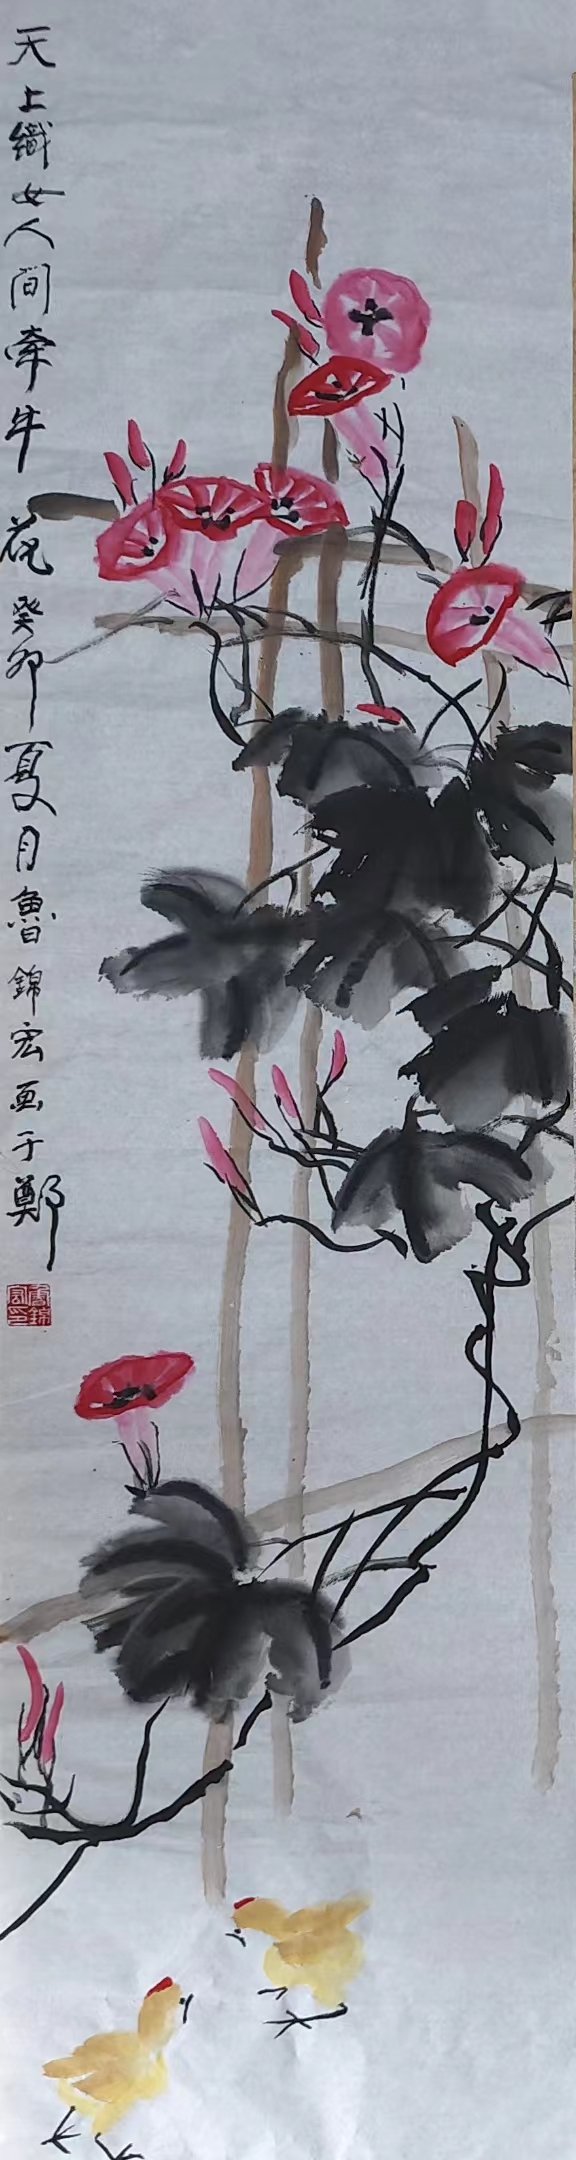 天上織女人间牵牛花癸卯夏月魯錦宏画于鄭